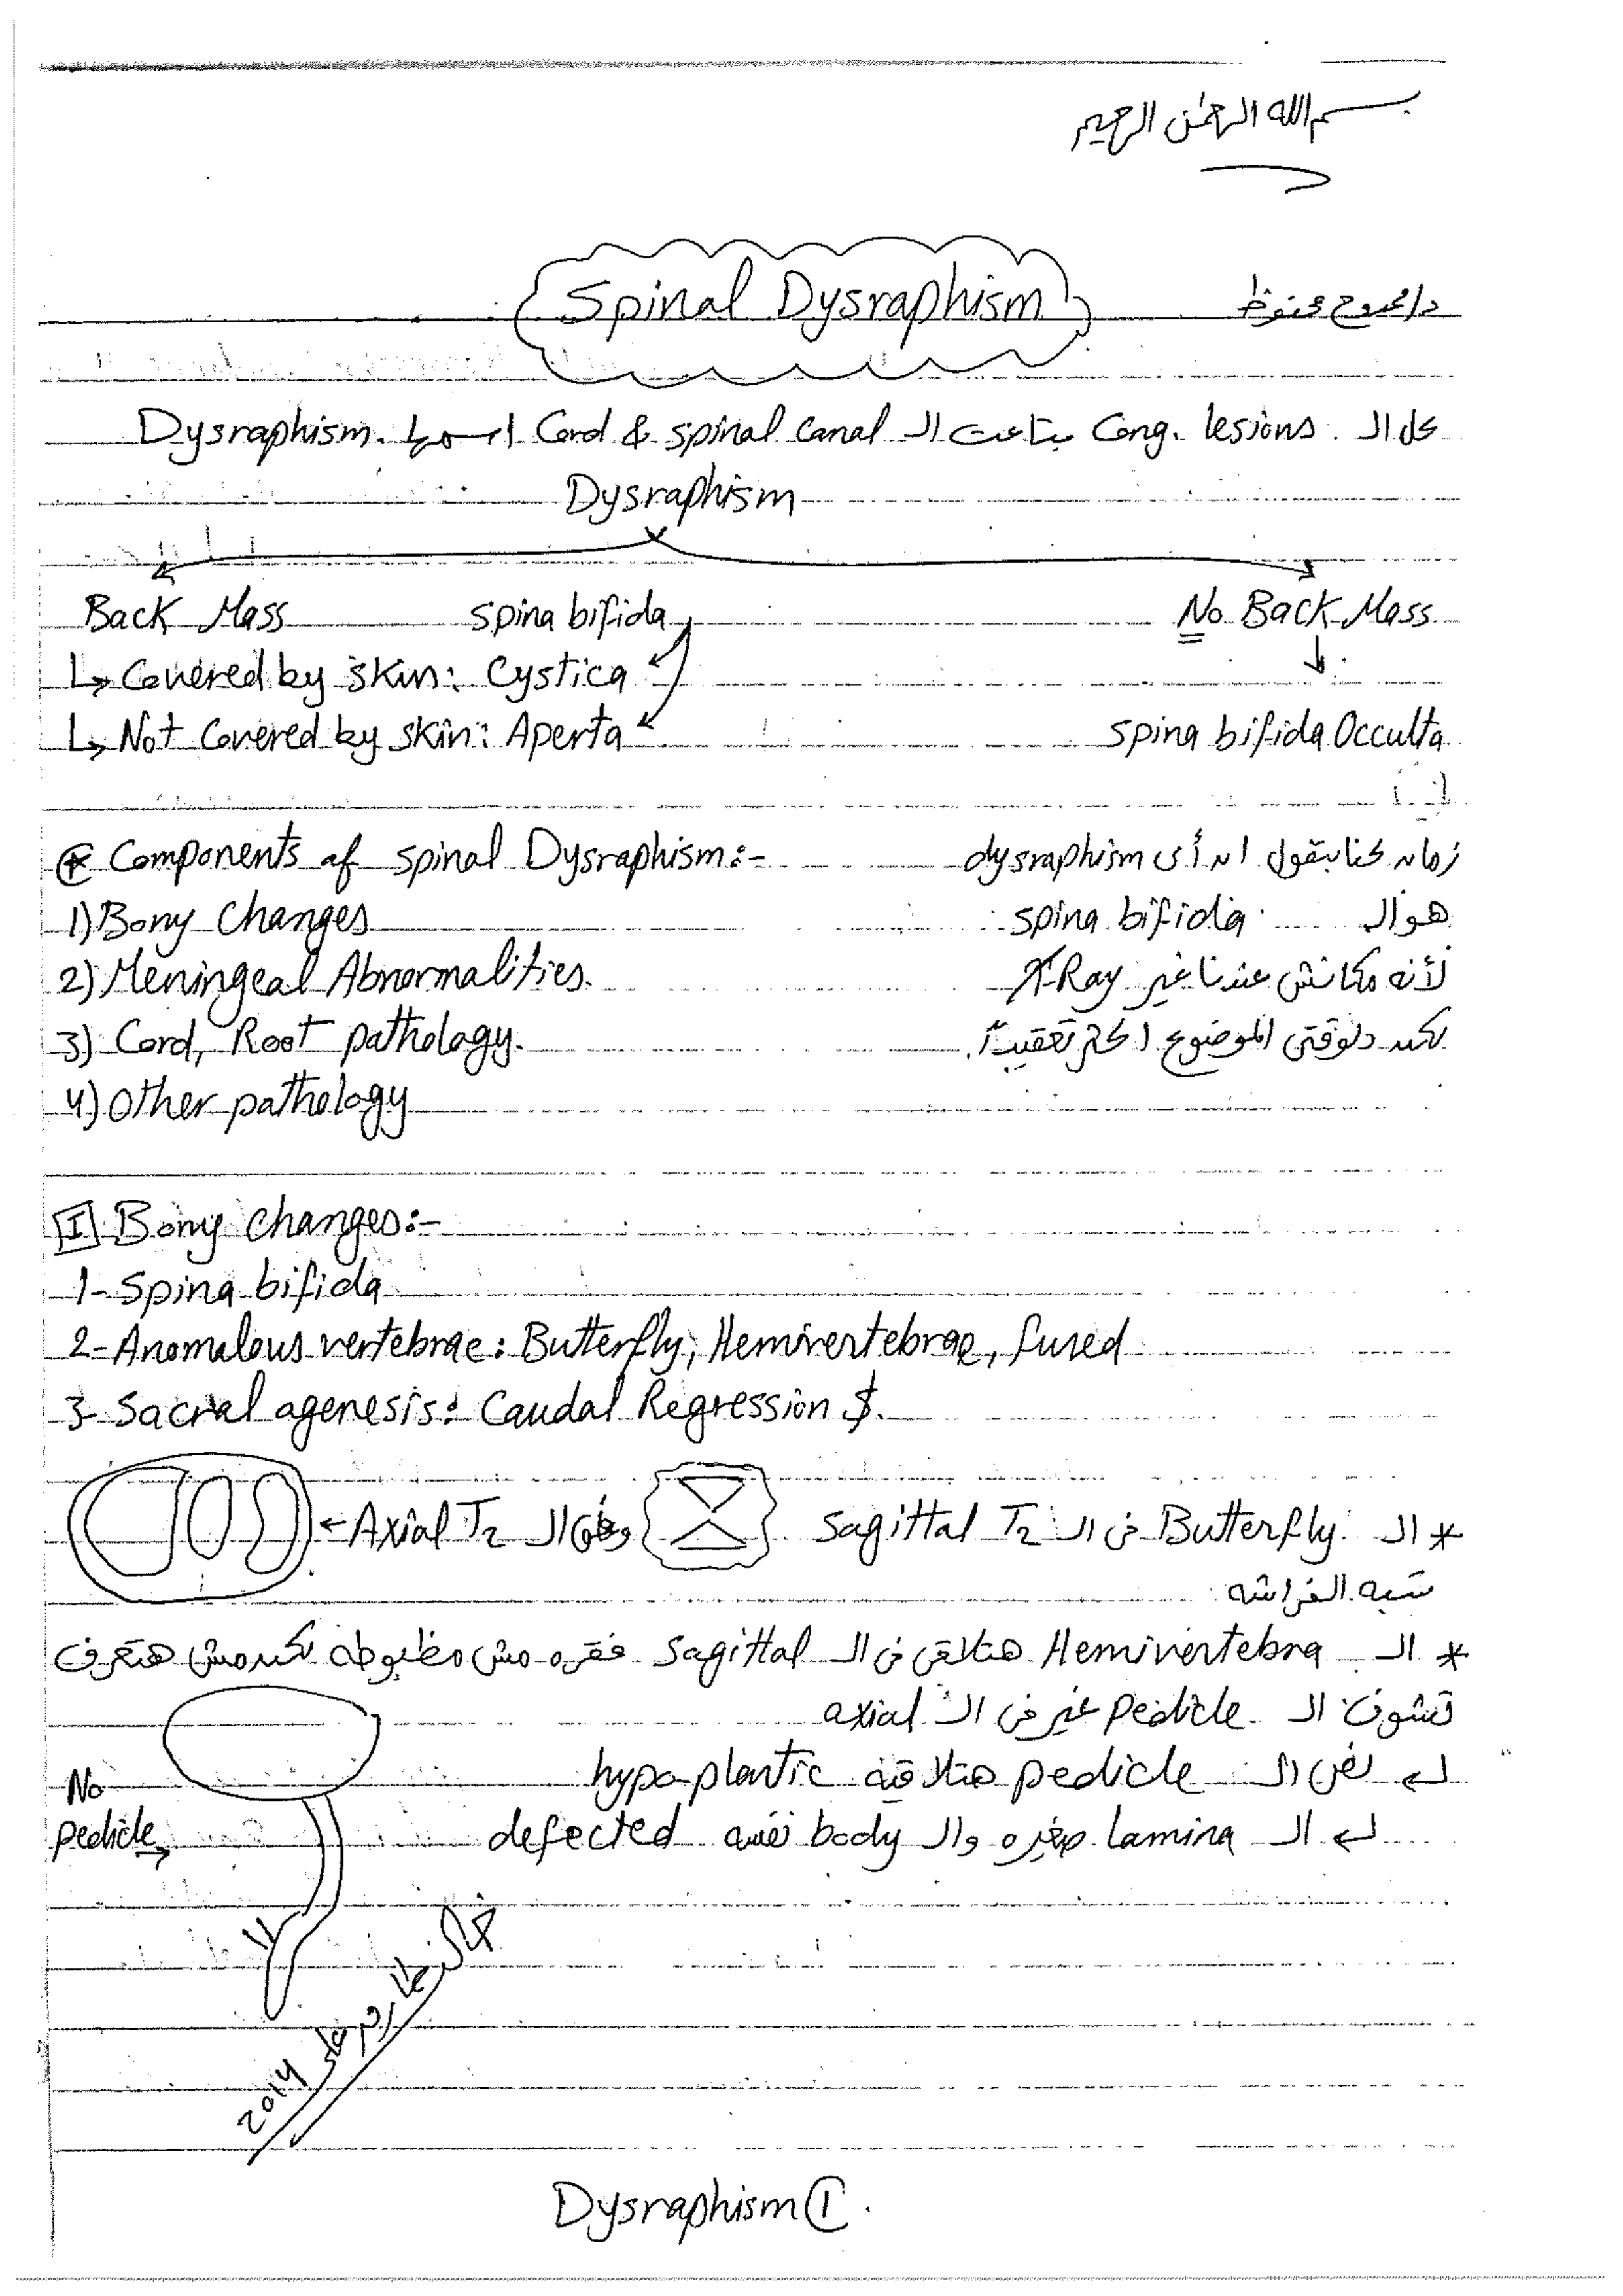 بسم الله الرحمن الرحيم
Spinal Dysraphism
د/ممدوح محفوظ
كل ال Cong. lesions بتاعت ال Cord & spinal canal اسمها Dysraphism.
Dysraphism
Back Mass
spina bifida
No Back Mass
↳ Covered by skin: Cystica
↳ Not Covered by skin: Aperta
spina bifida Occulta
⊛ Components of spinal Dysraphism:-
1) Bony Changes
2) Meningeal Abnormalities.
3) Cord, Root pathology.
4) Other pathology
زمان كنا بنقول ان أى dysraphism
هو ال spina bifida
لأنه مكانش عندنا غير X-Ray
لكن دلوقتى الموضوع اكثر تعقيداً.
I Bony changes:-
1- Spina bifida
2- Anomalous vertebrae: Butterfly, Hemivertebrae, fused
3- Sacral agenesis: Caudal Regression $.
* ال Butterfly فى ال Sagittal T2
وفى ال Axial T2 ←
شبه الفراشه
* ال Hemivertebra هتلاقى فى ال Sagittal فقره مش مظبوطه لكن مش هتعرف
تشوف ال Pedicle غير فى ال axial
↲ نص ال pedicle هتلاقيه hypo-plastic
↲ ال lamina صغيره وال body نفسه defected
No
pedicle →
2014
Dysraphism ①